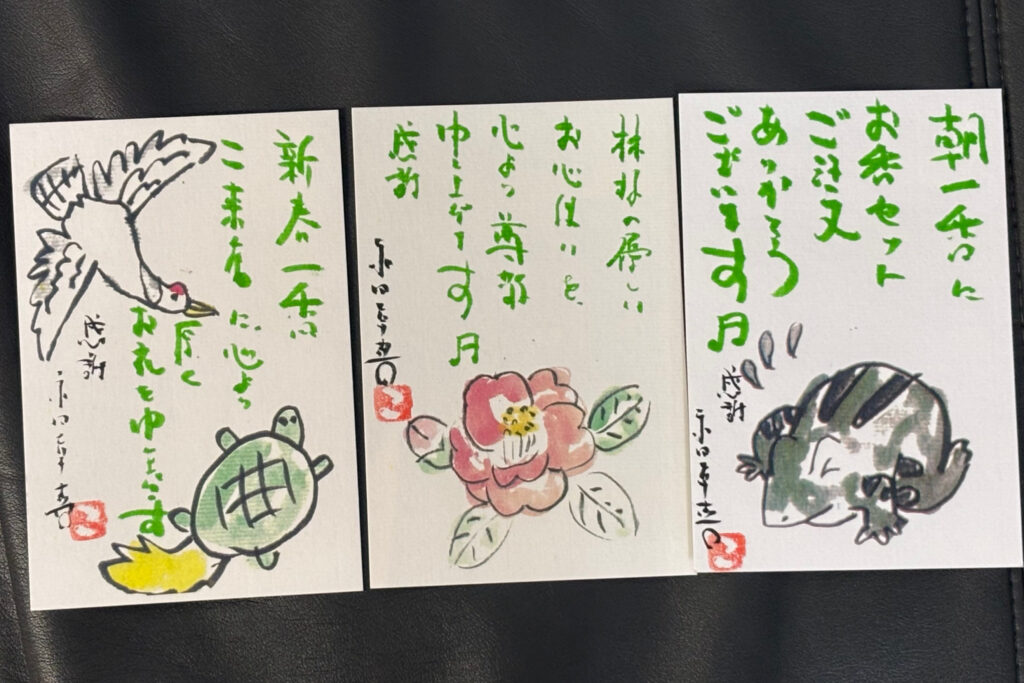 新春一番
ご来店に心より
厚く
お礼を申し上げます
感謝
林様の優しい
お心使いを
心より尊敬
申し上げます
感謝
朝一番に
お香セット
ご注文
ありがとう
ございます
感謝